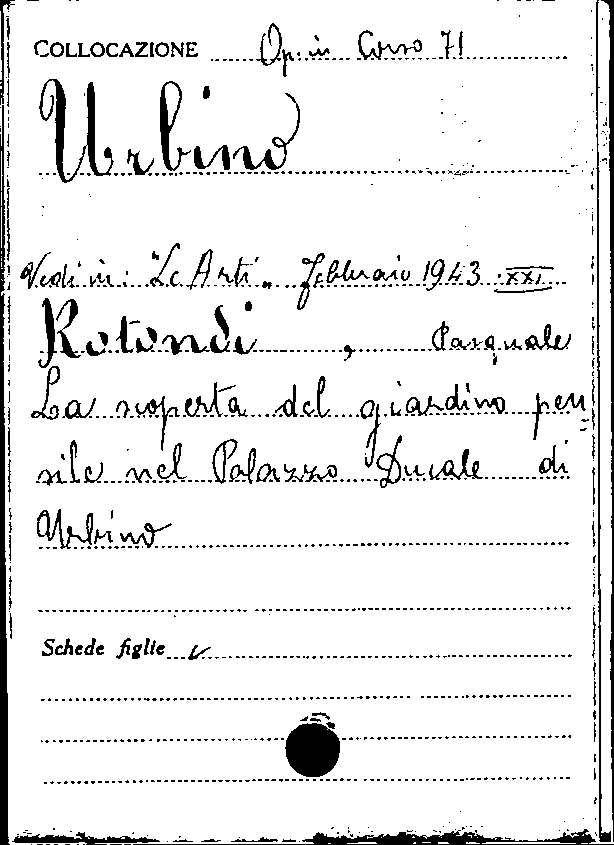 COLLOCAZIONE Op. in Corso 71
Urbino
Vedi in: "Le Arti" Febbraio 1943 XXI
Rotondi, Pasquale
La scoperta del giardino pen=
sile nel Palazzo Ducale di
Urbino
Schede figlie